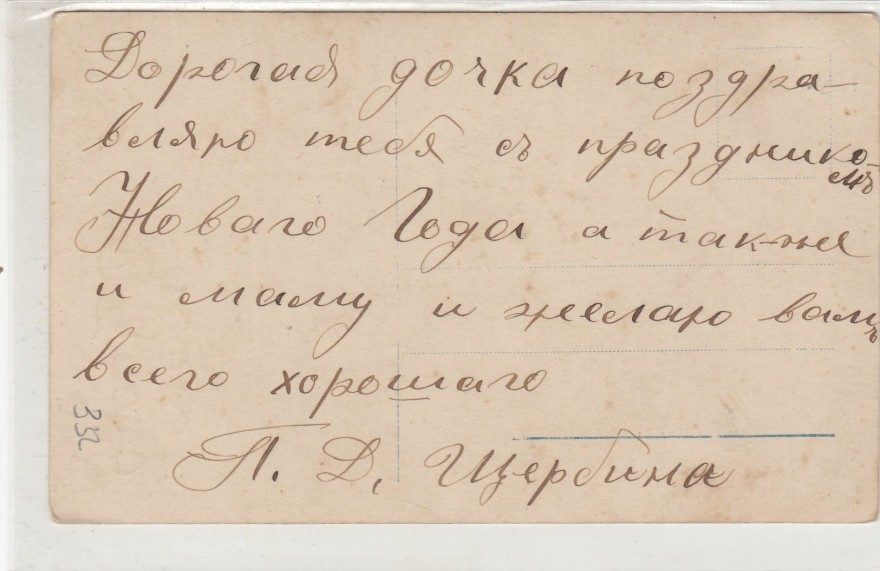 Дорогая дочка поздра-
вляю тебя съ празднико-
мъ
Новаго Года а так-же
и маму и желаю вамъ
всего хорошаго
П. Д, Щербина
332